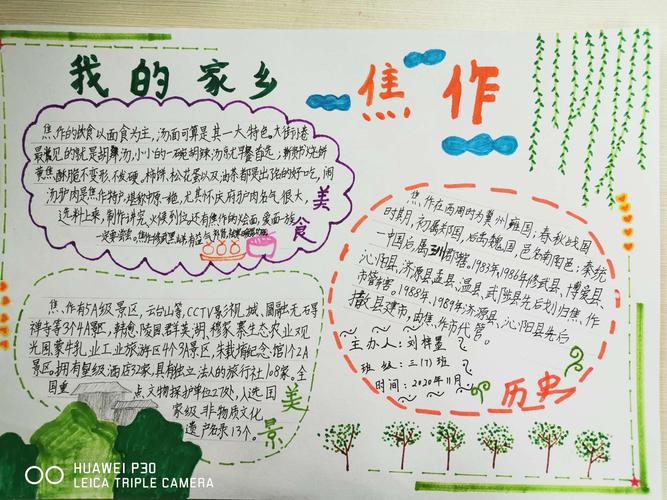 我的家乡
焦作
焦作的饮食以面食为主,汤面可算是其一大特色。大街小巷
最常见的就是胡辣汤,小小的一碗胡辣汤系早餐首选;
黄焦酥脆不变形,不皮硬。柿饼,松花蛋以及油茶都是出了名的好吃,闹
汤驴肉是焦作特产,堪称中原一绝,尤其怀庆府驴肉名气很大,
选料上乘,制作讲究,火候到位,还有焦作的
美食
焦作有5A级景区,云台山等,CCTV影视城、圆融无石寺
禅寺等3个4A景区,韩愈陵园,群英湖,穆家寨生态农业观
光园,蒙牛乳业工业旅游区4个3A景区,朱载堉纪念馆1个2A
景区。拥有星级酒店32家,具有独立法人的旅行社108家。全
国重点文物保护单位27处,入选国
家级非物质文化
遗产名录13个。
美景
焦作在西周时为 州雍国;春秋战国
时期,初属郑国,后齿魏国,邑名南阳邑;秦统
一中国后属 。1983年,1986年修武县,博爱县,
沁阳县,济源县孟县,温县,武陟县先后划归焦作
市管辖。1988年,1989年济源县,沁阳县先后
撤县建市,由焦作市代管。
主办人:刘梓昱
班级:三(7)班
时间:2020年11月
历史
HUAWEI P30
LEICA TRIPLE CAMERA